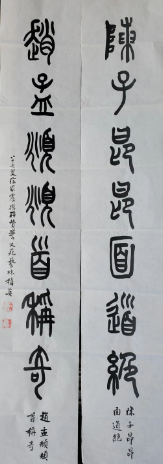 陳子昂昂面道絕
陳子昂昂
面道絕
趙孟頫頫首稱奇
趙孟頫頫
首稱奇